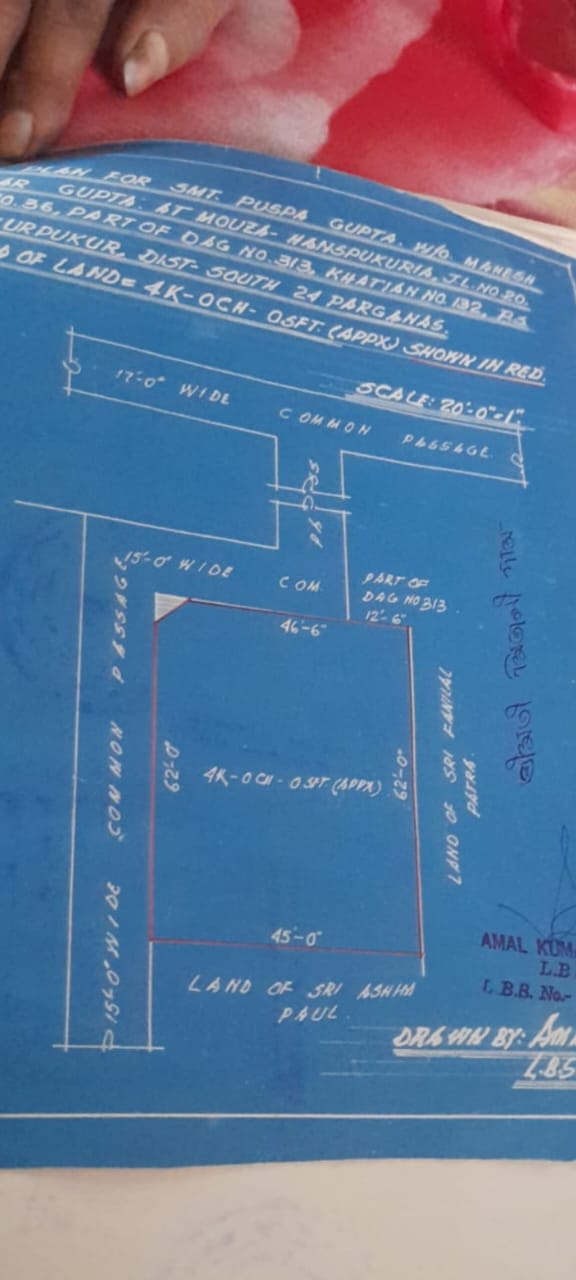 PLAN FOR SMT. PUSPA GUPTA. W/O. MAHESH
GUPTA. AT MOUZA- HANSPUKURIA, J.L. NO.20.
NO. 36, PART OF DAG NO. 313, KHATIAN NO. 132, P.S
URPUKUR, DIST- SOUTH 24 PARGANAS.
OF LAND= 4K-0CH- 0SFT. (APPX) SHOWN IN RED.
SCALE: 20'-0"=1"
17'-0" WIDE COMMON PASSAGE
PASS
15'-0" WIDE COM.
PART OF
DAG NO 313
12'-6"
46'-6"
15'-0" WIDE COMMON PASSAGE
62'-0"
4K-0CH-0SFT (APPX)
62'-0"
LAND OF SRI FANILAL
PATRA.
45'-0"
LAND OF SRI ASHIM
PAUL.
শ্রীমতী
AMAL KUM
L.B
L.B.S. No.-
DRAWN BY:
L.B.S